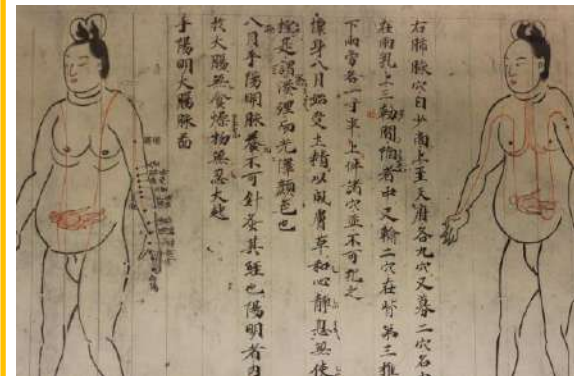 右肺脉穴自少商上至天府各九穴又募二穴名
在兩乳上三肋間陷者中又輸二穴在脊第三椎
下兩旁各一寸半上件諸穴並不可犯之
懷身八月始受土精以成膚革和心靜息無使
極是謂湊理而光澤顔色也
八月手陽明脉養不可針灸其經也陽明者内
我大腸無食燥物無忍大起
手陽明大腸脉啚